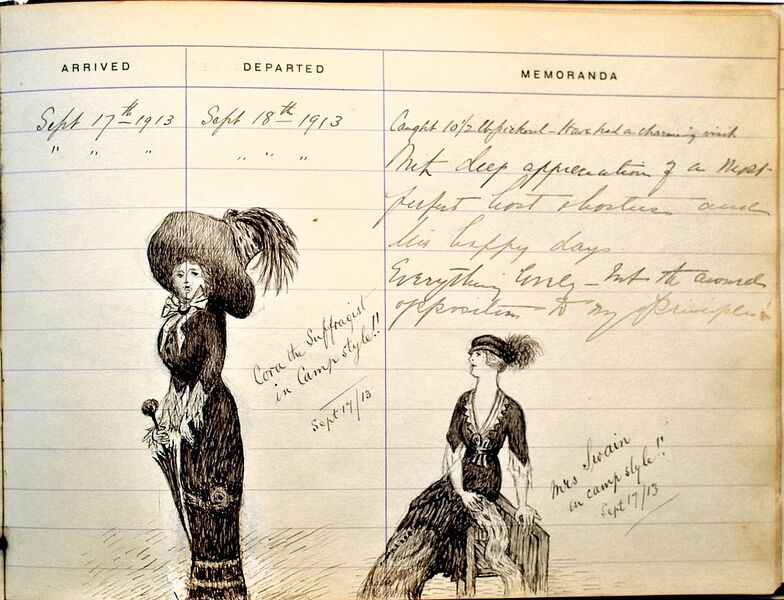 ARRIVED
DEPARTED
MEMORANDA
Sept 17th 1913
Sept 18th 1913
Caught 10 1/2 lb pickerel – Have had a charming visit
" " "
" " "
With deep appreciation of a most
perfect host & hostess and
happy days.
Everything lovely – but the
opposition to my principles
Cora the Suffragist
in Camp style!!
Sept 17/13
Mrs Swain
in camp style!!
Sept 17/13